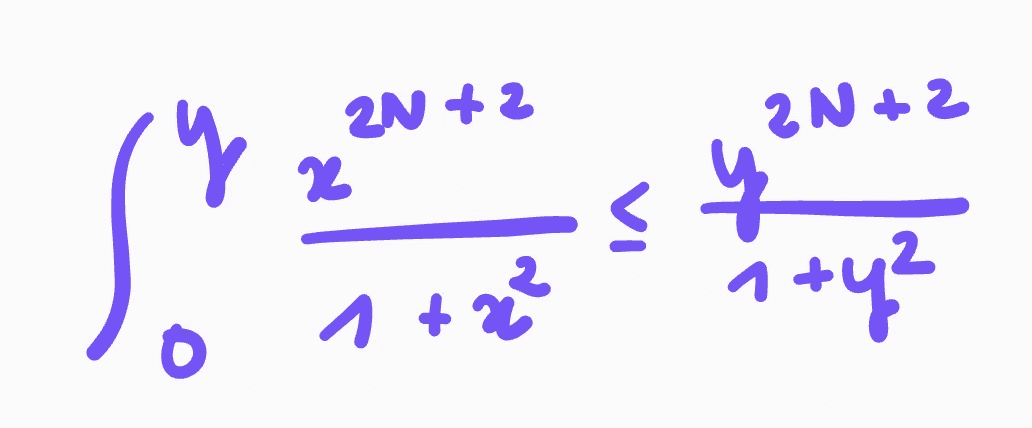 ∫₀ʸ x^{2N+2} / 1+x² ≤ y^{2N+2} / 1+y²